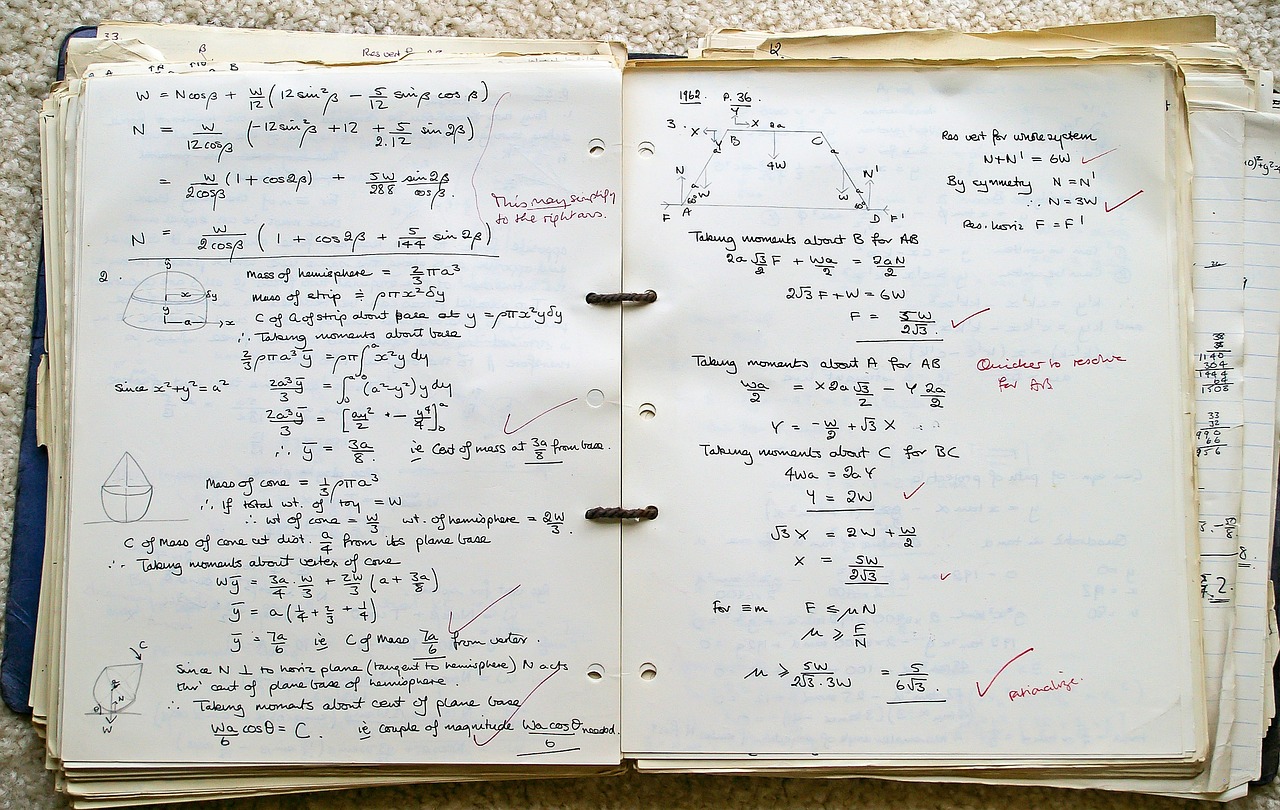 33.
β
Res vert
B
W = Ncosβ + W/12 (12sin²β − 5/12 sinβ cosβ)
N = W/12cosβ (−12sin²β + 12 + 5/2.12 sin2β)
= W/2cosβ (1 + cos2β) + 5W/288 sin2β/cosβ.
This may simplify
to the right ans.
N = W/2cosβ (1 + cos2β + 5/144 sin2β)
2.
y
x δy
y
a x
Mass of hemisphere = 2/3 πa³
Mass of strip ≑ ρπx²δy
C of G of strip about base at y = ρπx²yδy
∴ Taking moments about base
2/3 ρπa³ȳ = ρπ∫₀ᵃ x²y dy
Since x²+y²=a² 2a³ȳ/3 = ∫₀ᵃ (a²−y²)y dy
2a³ȳ/3 = [ay²/2 − y⁴/4]₀ᵃ
∴ ȳ = 3a/8 ie Cent of mass at 3a/8 from base.
Mass of cone = 1/3 ρπa³
∴ If total wt. of toy = W
∴ wt of cone = W/3 wt. of hemisphere = 2W/3.
C of Mass of cone at dist. a/4 from its plane base
∴ Taking moments about vertex of cone
Wȳ = 3a/4 · W/3 + 2W/3 (a + 3a/8)
ȳ = a(1/4 + 2/3 + 1/4)
ȳ = 7a/6 ie C of Mass 7a/6 from vertex.
C
N
θ
W
Since N ⊥ to horiz plane (tangent to hemisphere) N acts
thro' cent of plane base of hemisphere.
∴ Taking moments about cent of plane base
Wa/6 cosθ = C. ie couple of magnitude Wa cosθ/6 needed.
12.
1962. P. 36.
Y
3. X X 2a
Y B C
a 4W a
N N'
a W W a
60° 60°
F A D F'
Res vert for whole system
N+N' = 6W
By symmetry N = N'
∴ N = 3W
Res. horiz F = F'
Taking moments about B for AB
2a √3/2 F + Wa/2 = 2aN/2
2√3 F + W = 6W
F = 5W/2√3.
Taking moments about A for AB
Quicker to resolve
for AB
Wa/2 = X 2a √3/2 − Y 2a/2
Y = −W/2 + √3 X
Taking moments about C for BC
4Wa = 2aY
Y = 2W
√3 X = 2W + W/2
X = 5W/2√3
For ≡m F ≤ μN
μ ≥ F/N
μ ≥ 5W/2√3.3W = 5/6√3.
rationalize.
38
38
1140
304
1444
64
1508
33
32
990
66
956